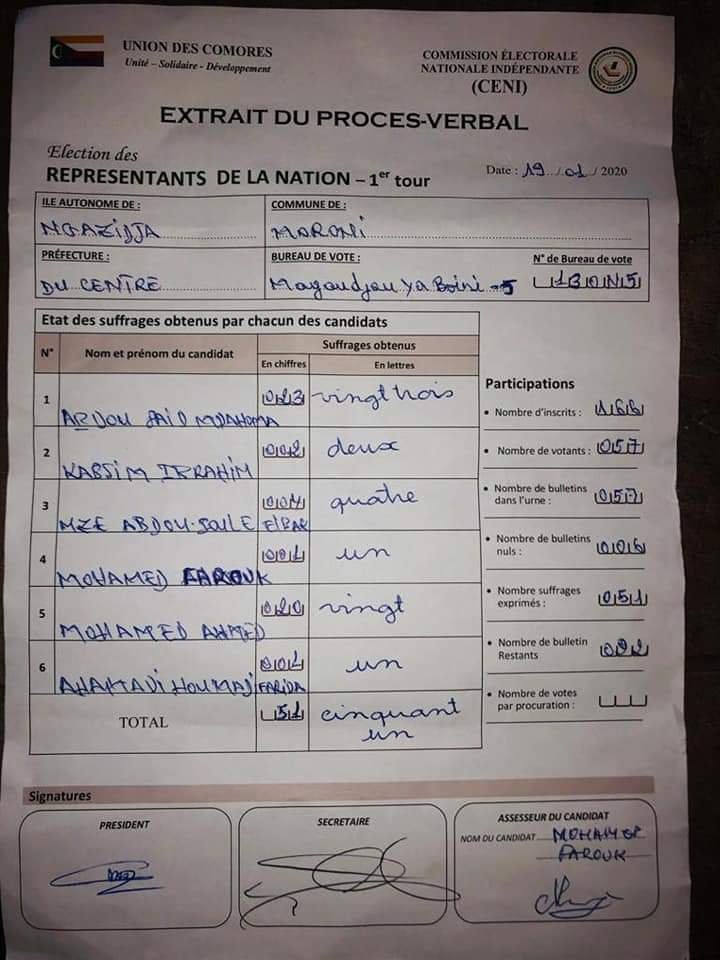 UNION DES COMORES
Unité – Solidaire - Développement
COMMISSION ÉLECTORALE
NATIONALE INDÉPENDANTE
(CENI)
EXTRAIT DU PROCES-VERBAL
Election des
REPRESENTANTS DE LA NATION – 1er tour
Date : 19 / 01 / 2020
ILE AUTONOME DE :
NGAZIDJA
COMMUNE DE :
MORONI
PRÉFECTURE :
DU CENTRE
BUREAU DE VOTE :
Magoudjou ya Boini -5
N° de Bureau de vote
Etat des suffrages obtenus par chacun des candidats
N° Nom et prénom du candidat Suffrages obtenus
En chiffres En lettres
1 ABDOU SAID MDAHOMA 023 vingt trois
2 KASSIM IBRAHIM 002 deux
3 MZE ABDOU-SOULE ELBAK 004 quatre
4 MOHAMED FAROUK 001 un
5 MOHAMED AHMED 020 vingt
6 AHAMADI HOUMADI FARIDA 001 un
TOTAL 51 cinquant un
Participations
• Nombre d'inscrits : 166
• Nombre de votants : 057
• Nombre de bulletins dans l'urne : 057
• Nombre de bulletins nuls : 006
• Nombre suffrages exprimés : 051
• Nombre de bulletin Restants
• Nombre de votes par procuration :
Signatures
PRESIDENT
SECRETAIRE
ASSESSEUR DU CANDIDAT
NOM DU CANDIDAT MOHAMED
FAROUK